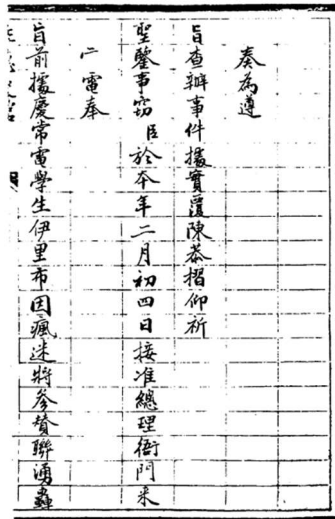 奏為遵
旨查辦事件據實覆陳恭摺仰祈
聖鑒事竊臣於本年二月初四日接准總理衙門來
二電奉
旨前據慶常電學生伊里布因瘋迷將參贊聯湧